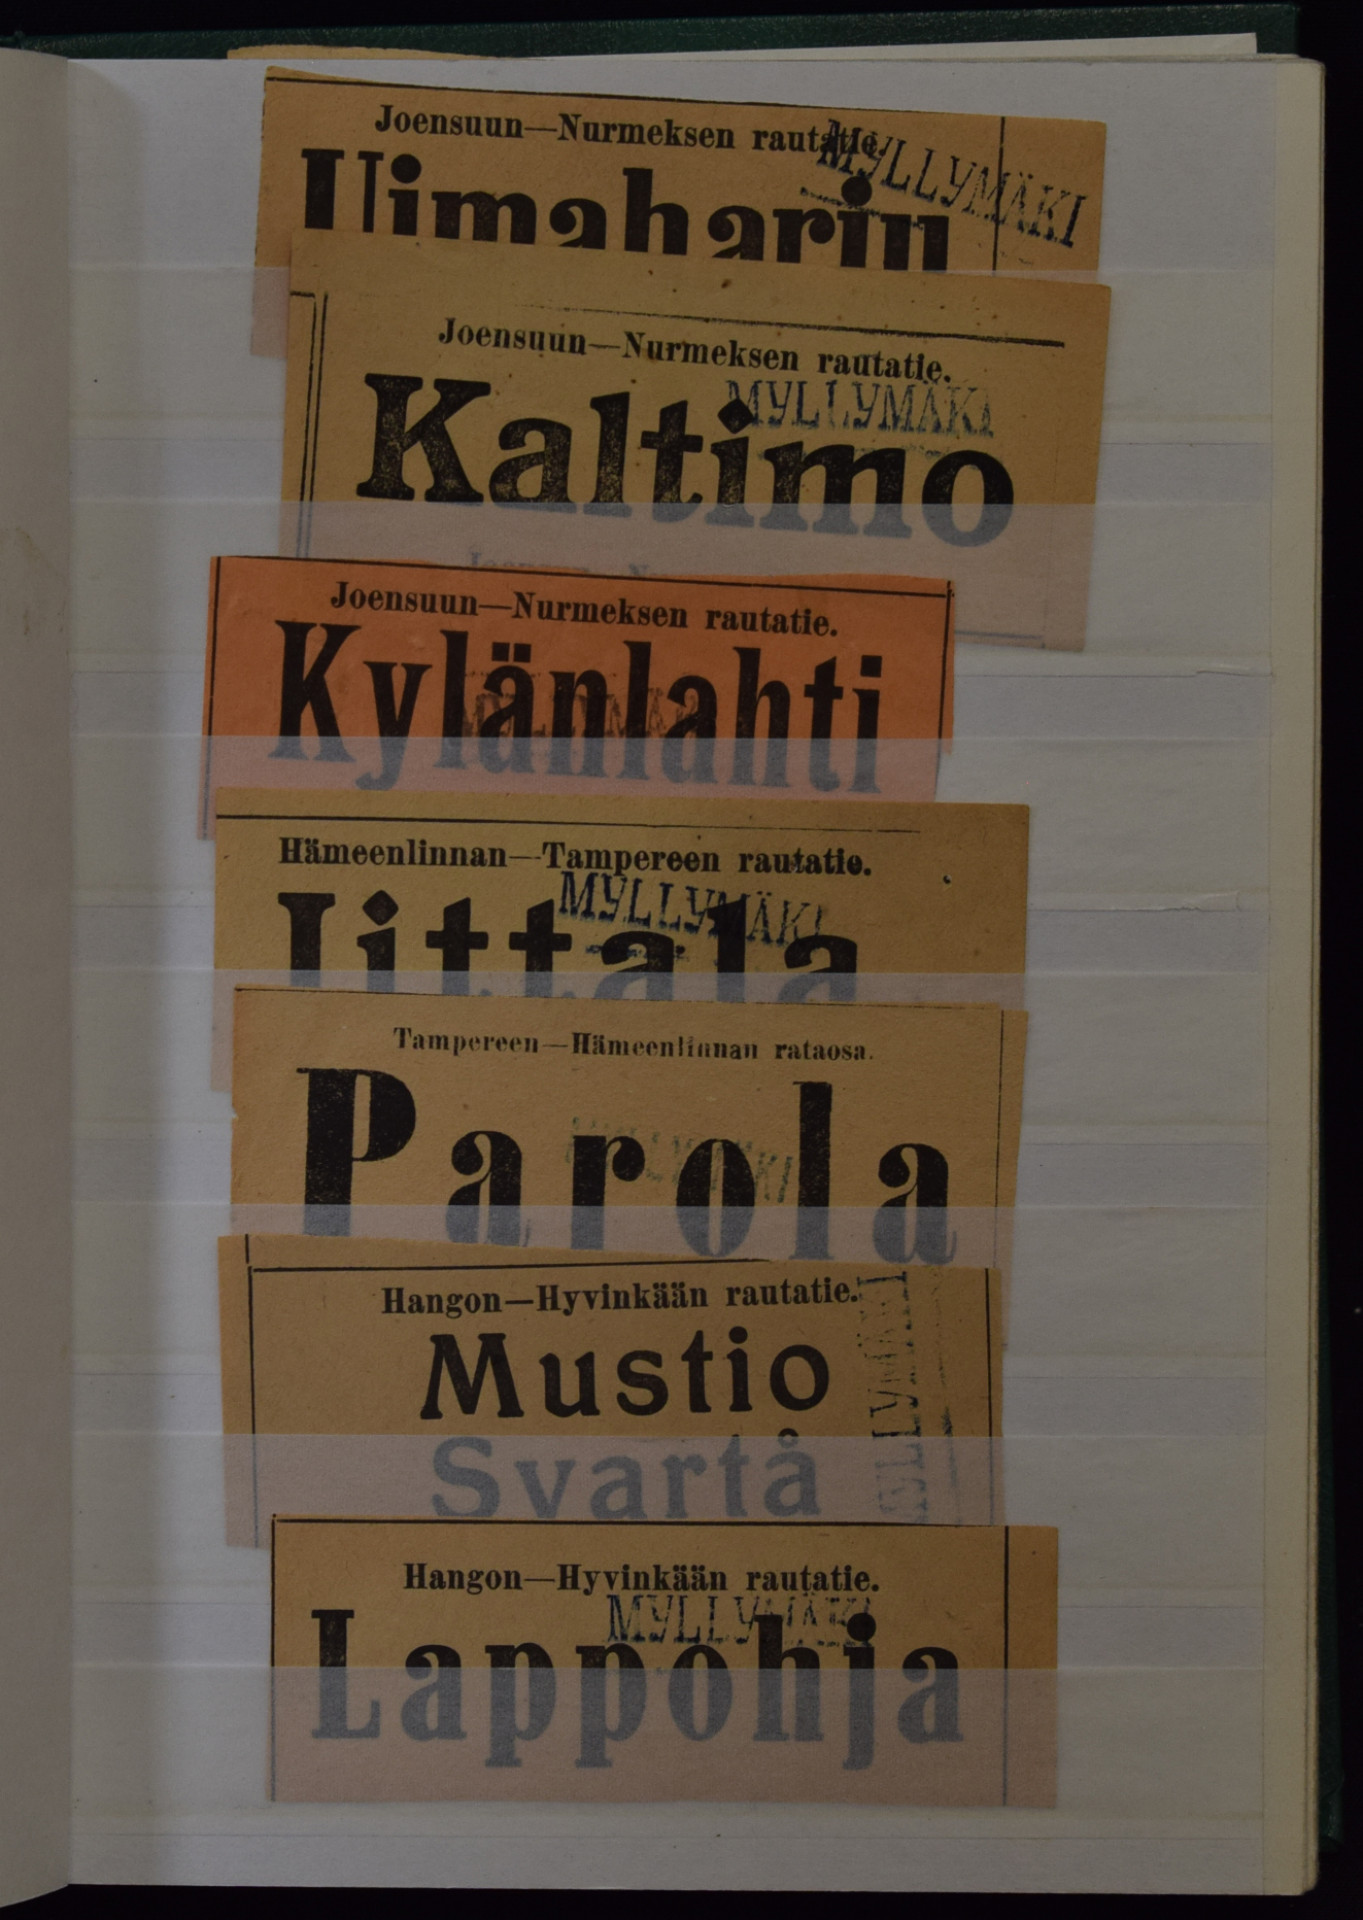 Joensuun—Nurmeksen rautatie.
MYLLYMÄKI
Uimaharju
Joensuun—Nurmeksen rautatie.
MYLLYMÄKI
Kaltimo
Joensuun—Nurmeksen rautatie.
Kylänlahti
MYLLYMÄKI
Hämeenlinnan—Tampereen rautatie.
MYLLYMÄKI
Iittala
Tampereen—Hämeenlinnan rataosa.
Parola
MYLLYMÄKI
Hangon—Hyvinkään rautatie.
MYLLYMÄKI
Mustio
Svartå
Hangon—Hyvinkään rautatie.
MYLLYMÄKI
Lappohja